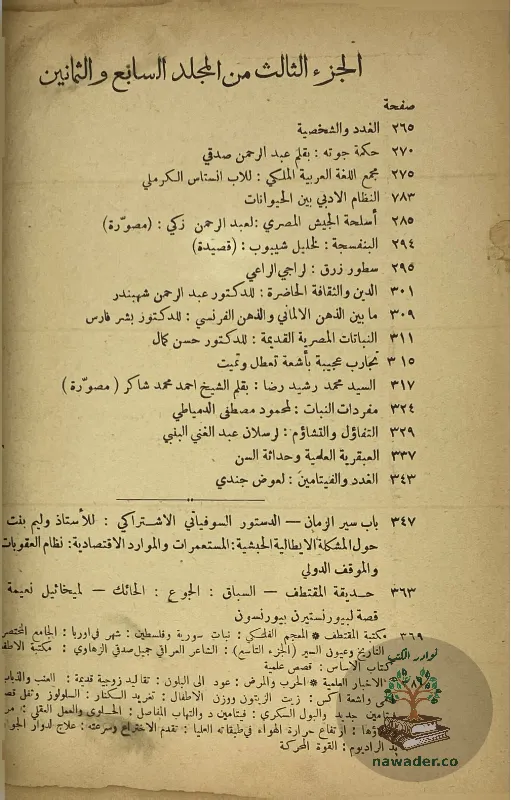 الجزء الثالث من المجلد السابع والثمانين
صفحة
٢٦٥ الغدد والشخصية
٢٧٠ حكمة جوته : بقلم عبد الرحمن صدقي
٢٧٥ مجمع اللغة العربية الملكي : للاب انستاس الكرملي
٧٨٣ النظام الادبي بين الحيوانات
٢٨٥ أسلحة الجيش المصري : لعبد الرحمن زكي : (مصوّرة)
٢٩٤ البنفسجة : لخليل شيبوب : (قصيدة)
٢٩٥ سطور زرق : لراجي الراعي
٣٠١ الدين والثقافة الحاضرة : للدكتور عبد الرحمن شهبندر
٣٠٩ ما بين الذهن الالماني والذهن الفرنسي : للدكتور بشر فارس
٣١١ النباتات المصرية القديمة : للدكتور حسن كمال
٣١٥ تجارب عجيبة بأشعة تعطل وتميت
٣١٧ السيد محمد رشيد رضا : بقلم الشيخ احمد محمد شاكر ( مصوّرة )
٣٢٤ مفردات النبات : لمحمود مصطفى الدمياطي
٣٢٩ التفاؤل والتشاؤم : لرسلان عبد الغني البنبي
٣٣٧ العبقرية العلمية وحداثة السن
٣٤٣ الغدد والفيتامين : لعوض جندي
٣٤٧ باب سير الزمان — الدستور السوفياتي الاشتراكي : للأستاذ وليم بنت
حول المشكلة الايطالية الحبشية : المستعمرات والموارد الاقتصادية : نظام العقوبات
والموقف الدولي
٣٦٣ حديقة المقتطف — السباق : الجوع : الحائك — لميخائيل نعيمة
قصة لبيورنستيرن بيورنسون
٣٦٩ مكتبة المقتطف * المعجم الفلكي : نبات سورية وفلسطين : شهر في اوربا : الجامع المختصر
التاريخ وعيون السير (الجزء التاسع) : الشاعر العراقي جميل صدقي الزهاوي : مكتبة
كتاب الاساس : قصص علمية
الاخبار العلمية * الحرب والمرض : عود الى البلون : تقاليد زوجية قديمة : العنب والذباب
واشعة اكس : زيت الزيتون ووزن الاطفال : تغريد الكنار : السلولوز وتفل
جديد والبول السكري : فيتامين د والتهاب المفاصل : الحلوى والعمل العقلي :
ارتفاع حرارة الهواء في طبقاته العليا : تقدم الاختراع وسرعته : علاج لدوار
الراديوم : القوة المحركة
نوادر الكتب
nawader.co